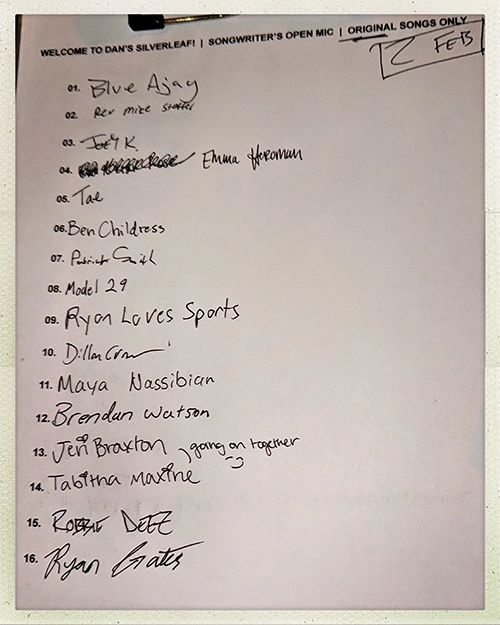 WELCOME TO DAN'S SILVERLEAF! | SONGWRITER'S OPEN MIC | ORIGINAL SONGS ONLY
12 FEB
01. Blue Ajay
02. Rev Mike
03. Joey K.
04. Emma Heroman
05. Tae
06. Ben Childress
07. Patrick Smith
08. Model 29
09. Ryan Loves Sports
10. Dillon
11. Maya Nassibian
12. Brendan Watson
13. Jeri Braxton going on together
14. Tabitha Maxine
15. ROBBIE DEEZ
16. Ryan Gates